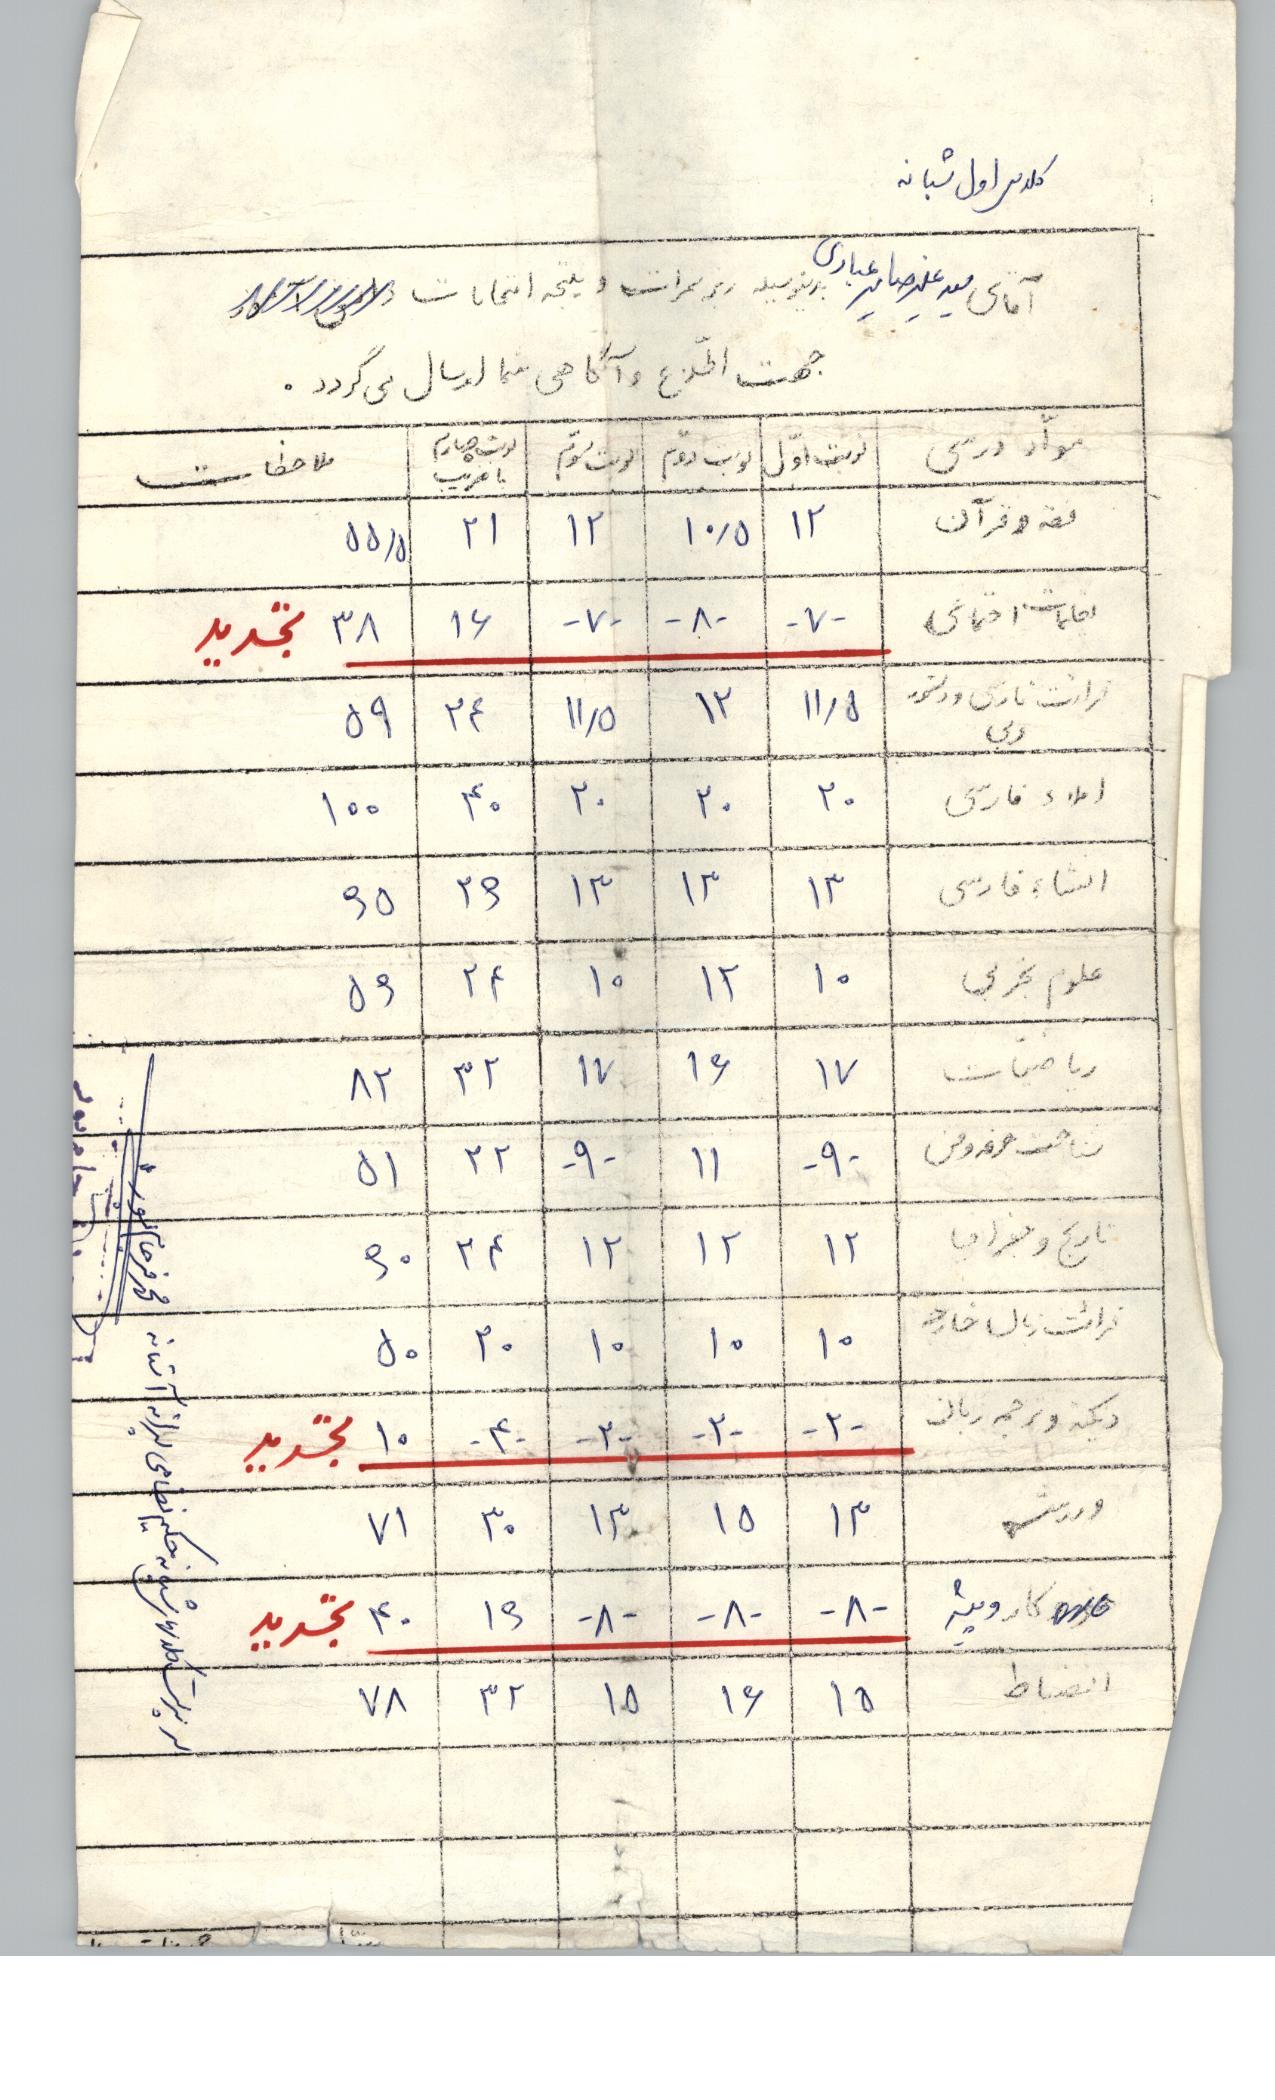 کلاس اول شبانه
آقای سید علیرضا میر عبادی بدینوسیله ریز نمرات و نتیجه امتحانات
جهت اطلاع و آگاهی شما ارسال می گردد .
موادّ درسی نوبت اوّل نوبت دوّم نوبت سوّم نوبت چهارم با ضریب ملاحظات
فقه و قرآن ۱۲ ۱۰/۵ ۱۲ ۲۱ ۵۵/۵
تعلیمات اجتماعی -۷- -۸- -۷- ۱۶ ۳۸ تجدید
قرائت فارسی و دستور ۱۱/۵ ۱۲ ۱۱/۵ ۲۴ ۵۹
املاء فارسی ۲۰ ۲۰ ۲۰ ۴۰ ۱۰۰
انشاء فارسی ۱۳ ۱۳ ۱۳ ۲۶ ۶۵
علوم تجربی ۱۰ ۱۲ ۱۰ ۲۴ ۵۶
ریاضیات ۱۷ ۱۶ ۱۷ ۳۲ ۸۲
شناخت حرفه و فن -۹- ۱۱ -۹- ۲۲ ۵۱
تاریخ و جغرافیا ۱۲ ۱۲ ۱۲ ۲۴ ۶۰
قرائت زبان خارجه ۱۰ ۱۰ ۱۰ ۲۰ ۵۰
دیکته و ترجمه زبان -۲- -۲- -۲- -۴- ۱۰ تجدید
ورزش ۱۳ ۱۵ ۱۳ ۳۰ ۷۱
کار و پیشه -۸- -۸- -۸- ۱۶ ۴۰ تجدید
انضباط ۱۵ ۱۶ ۱۵ ۳۲ ۷۸
سرپرست کلاسهای شبانه حکیم نظامی آستانه